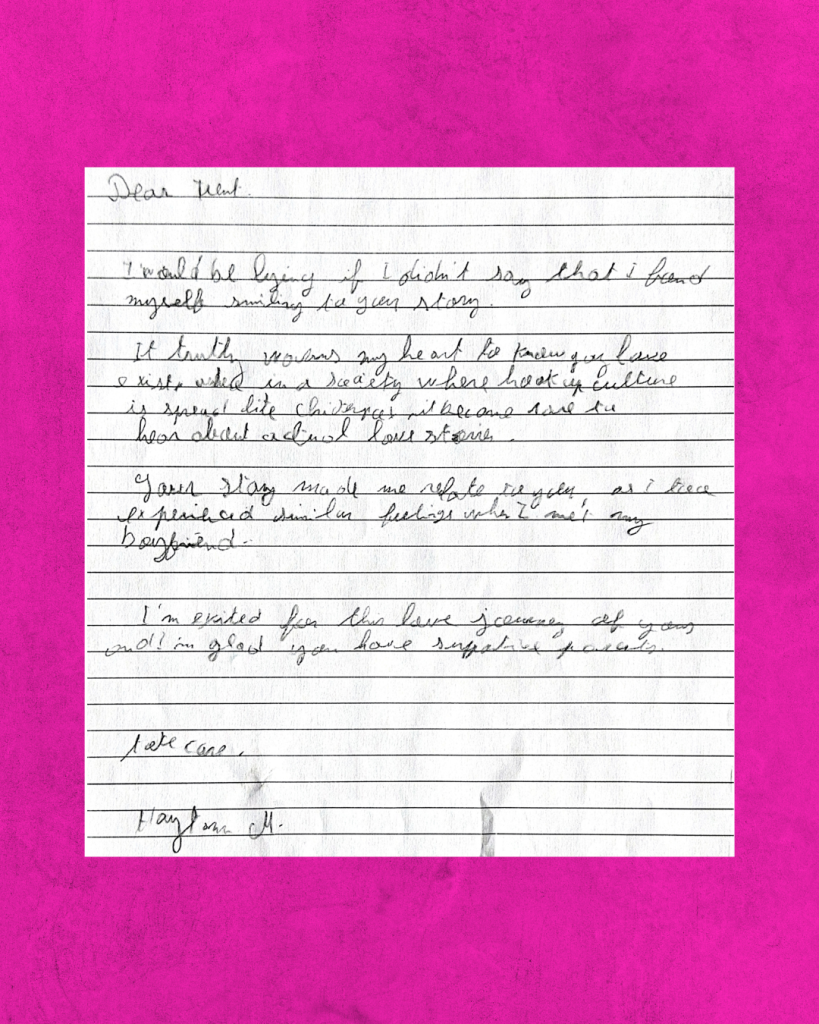 Dear Trent.
I would be lying if I didn't say that i found
myself smiling to your story.
It truthly warms my heart to know gay love
exist, in a society where hook up culture
is spread like it became rare to
hear about actual love stories.
Your story made me relate to you, as i have
experienced similar feelings when I met my
boyfriend.
I'm exited for this love journey of yours
and I'm glad you have supportive parents.
take care.
M.